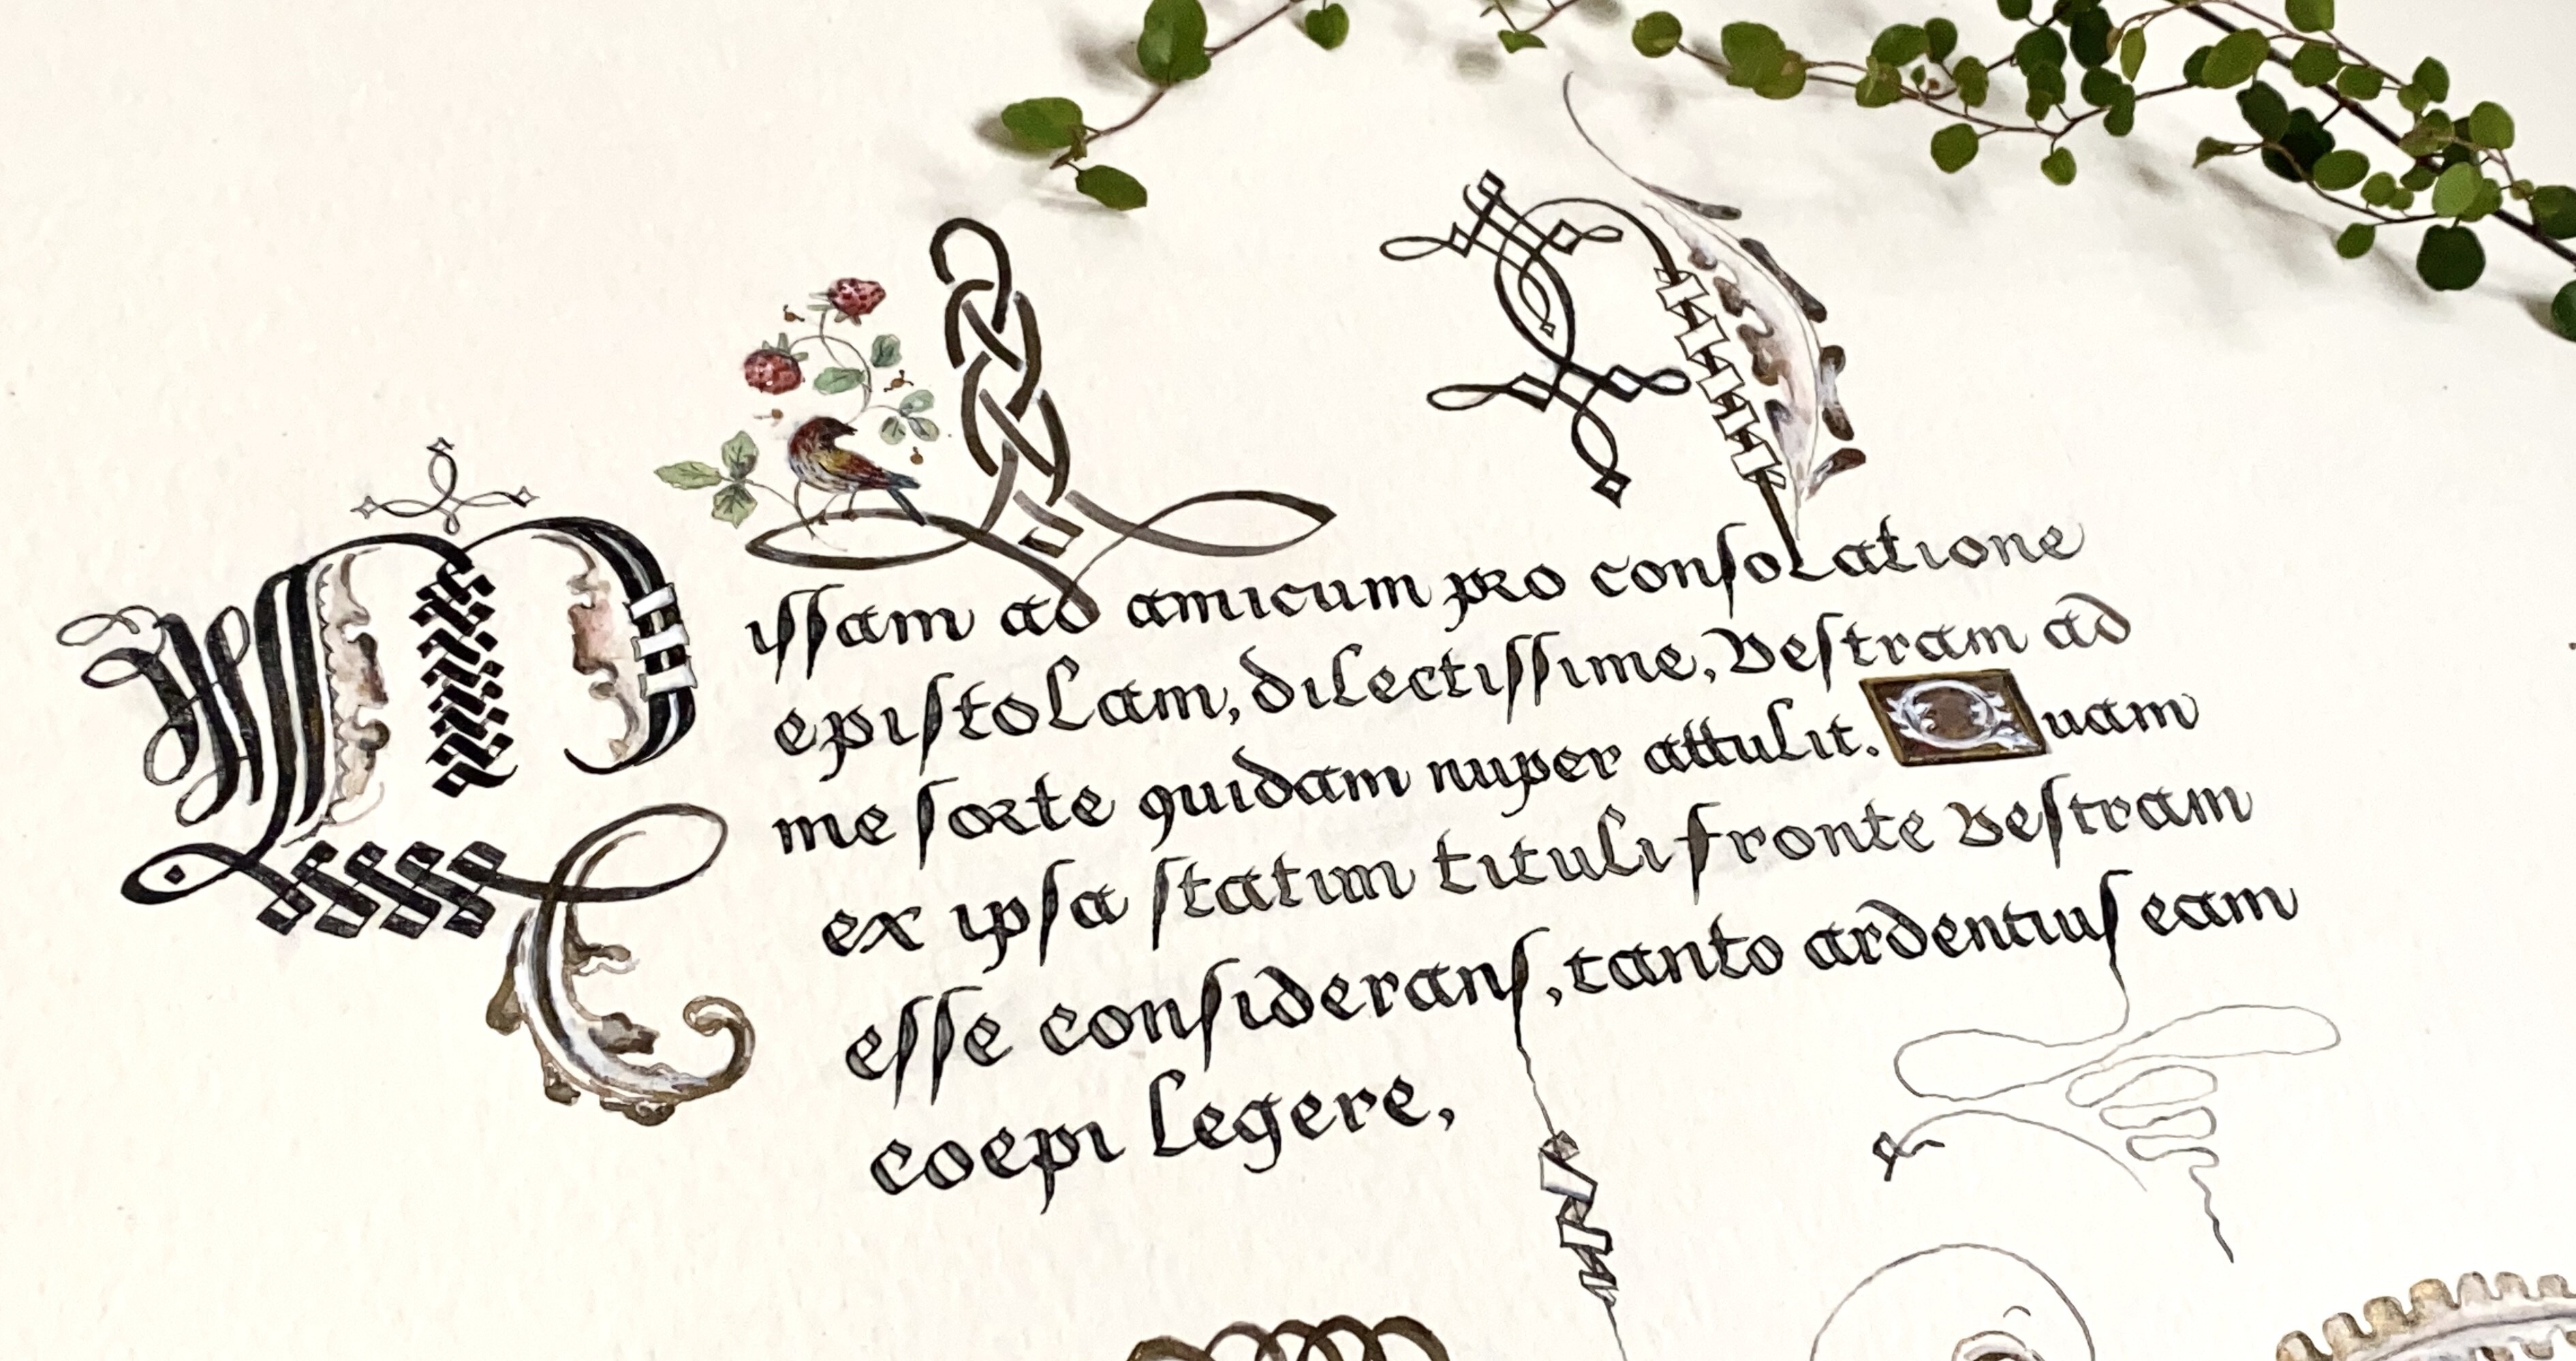 Missam ad amicum pro consolatione
epistolam, dilectissime, vestram ad
me forte quidam nuper attulit. Quam
ex ipsa statim tituli fronte vestram
esse considerans, tanto ardentius eam
coepi legere,